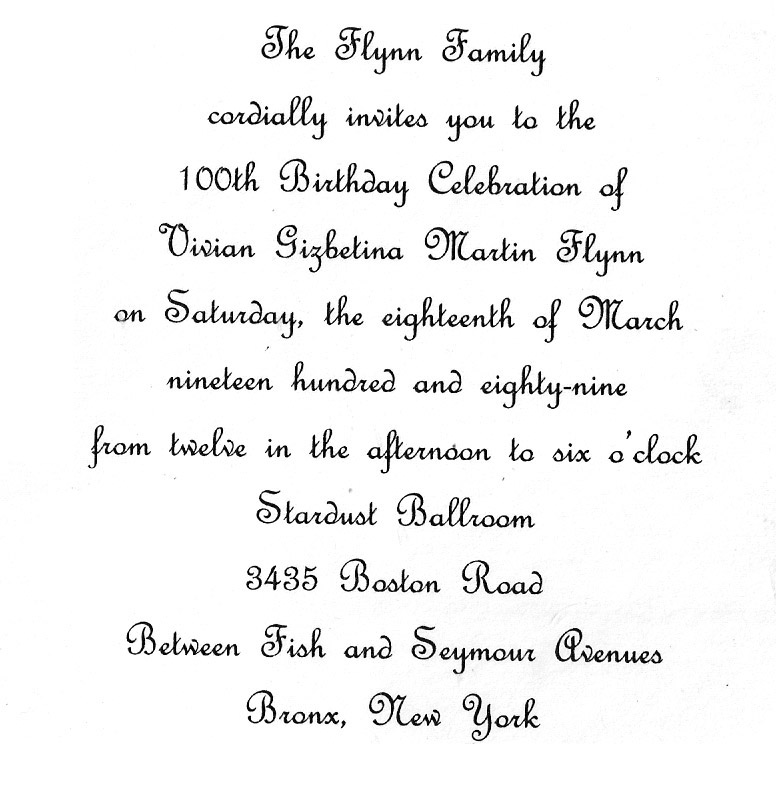 The Flynn Family
cordially invites you to the
100th Birthday Celebration of
Vivian Gizbetina Martin Flynn
on Saturday, the eighteenth of March
nineteen hundred and eighty-nine
from twelve in the afternoon to six o'clock
Stardust Ballroom
3435 Boston Road
Between Fish and Seymour Avenues
Bronx, New York